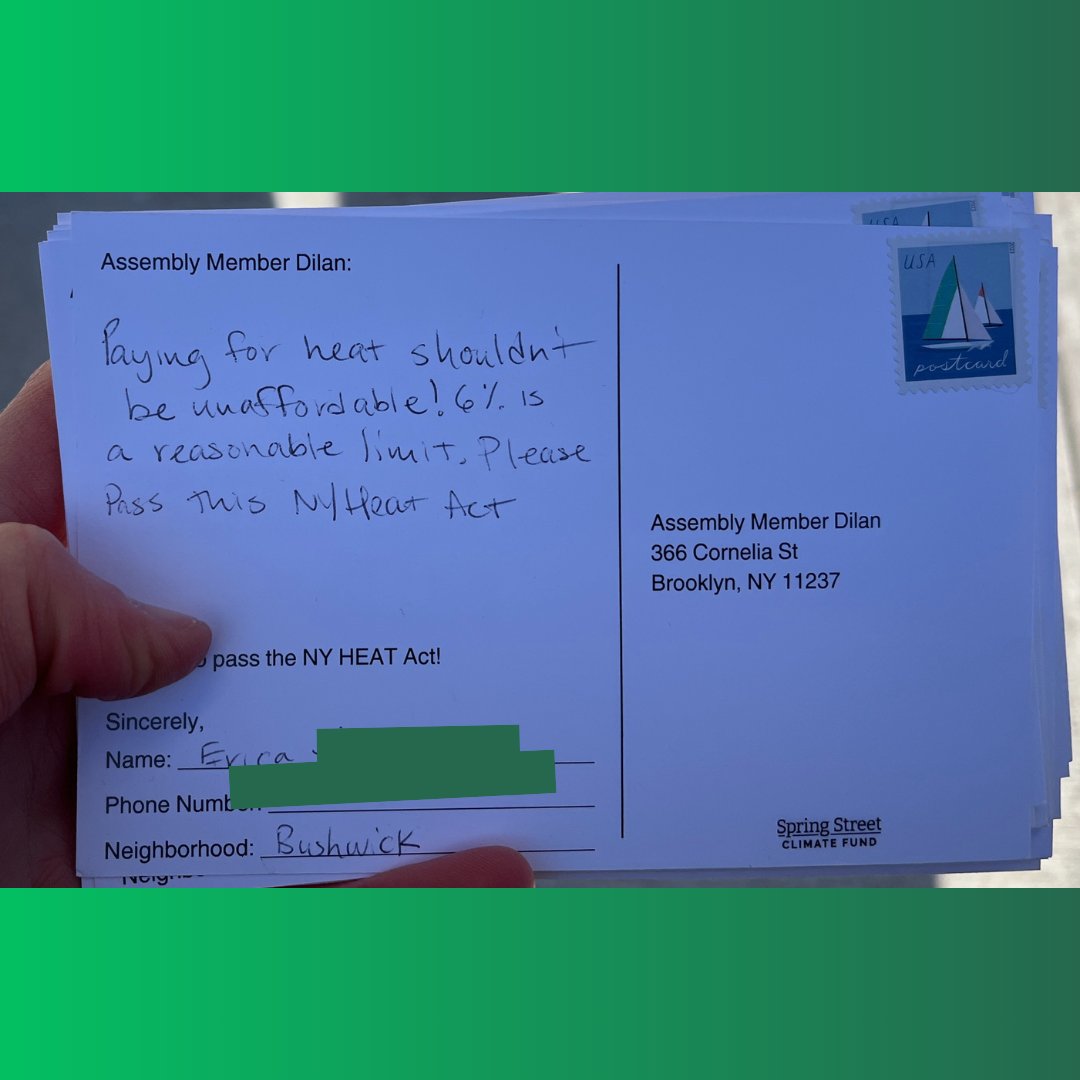 Assembly Member Dilan:
Paying for heat shouldn't
be unaffordable! 6% is
a reasonable limit. Please
Pass this NY Heat Act
pass the NY HEAT Act!
Sincerely,
Name: Erica
Phone Number:
Neighborhood: Bushwick
USA
USA
postcard
Assembly Member Dilan
366 Cornelia St
Brooklyn, NY 11237
Spring Street
CLIMATE FUND